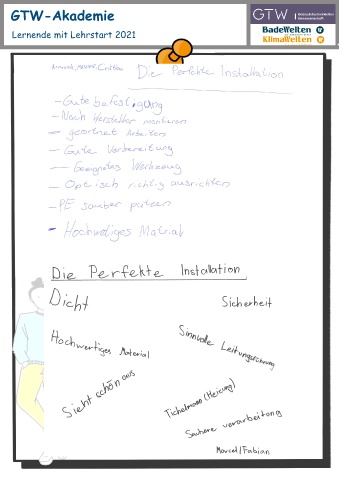 GTW-Akademie
Lernende mit Lehrstart 2021
GTW
BadeWelten
KlimaWelten
Die Perfekte Installation
- Gute befestigung
- Nach Hersteller montieren
- geordnet Arbeiten
- Gute Vorbereitung
- Geeignetes Werkzeug
- Optisch richtig ausrichten
- PE sauber putzen
- Hochwertiges Matrial
Die Perfekte Installation
Dicht
Sicherheit
Hochwertiges Material
Sinnvolle Leitungsführung
Sieht schön aus
Tichelmann (Heizung)
Saubere verarbeitung
Marcel/Fabian